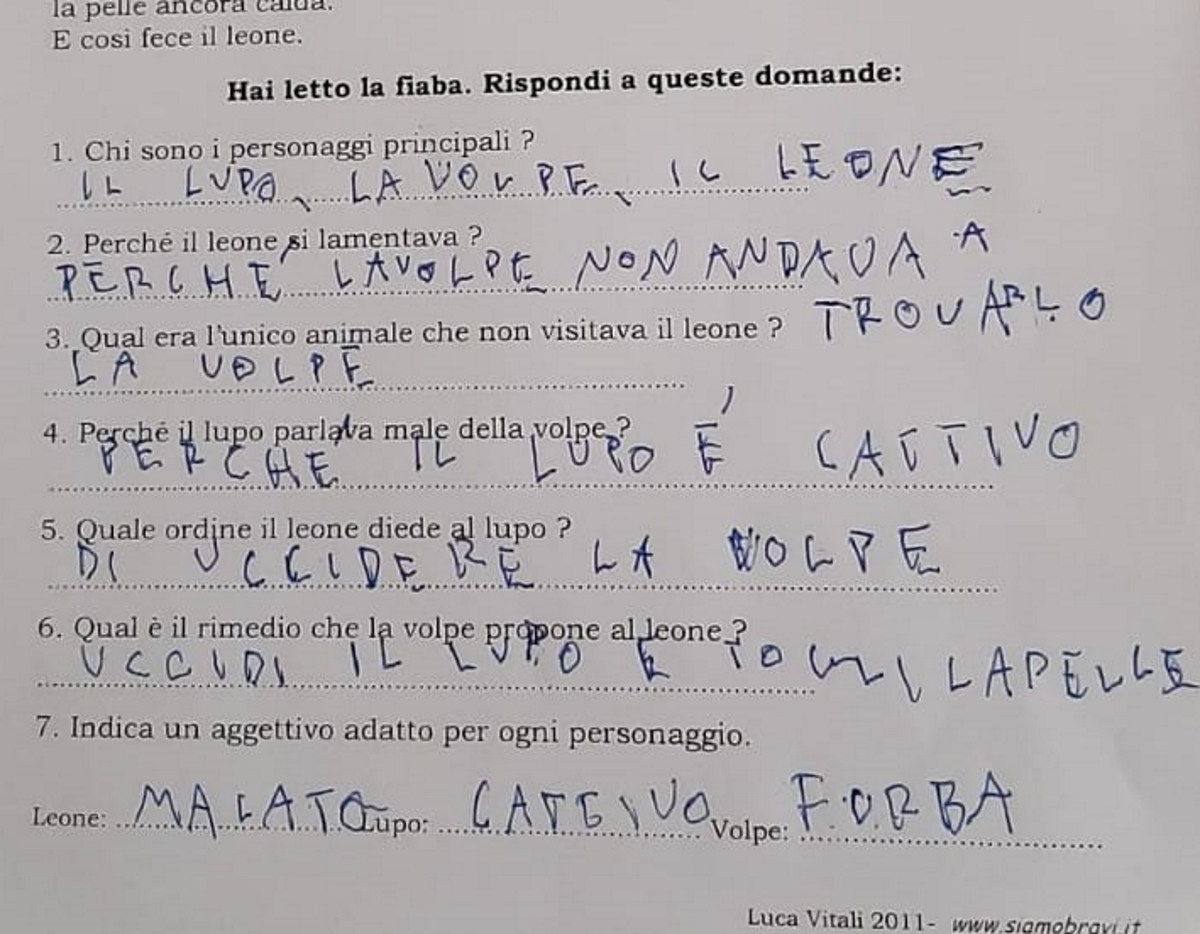 la pelle ancora calda.
E così fece il leone.
Hai letto la fiaba. Rispondi a queste domande:
1. Chi sono i personaggi principali ?
IL LUPO, LA VOLPE, IL LEONE
2. Perché il leone si lamentava ?
PERCHÉ LA VOLPE NON ANDAVA A
TROVARLO
3. Qual era l'unico animale che non visitava il leone ?
LA VOLPE
4. Perché il lupo parlava male della volpe ?
PERCHÉ IL LUPO É CATTIVO
5. Quale ordine il leone diede al lupo ?
DI UCCIDERE LA VOLPE
6. Qual è il rimedio che la volpe propone al leone ?
UCCIDI IL LUPO E LAPELLE
7. Indica un aggettivo adatto per ogni personaggio.
Leone: MALATO Lupo: CATTIVO Volpe: FORBA
Luca Vitali 2011- www.siamobravi.it